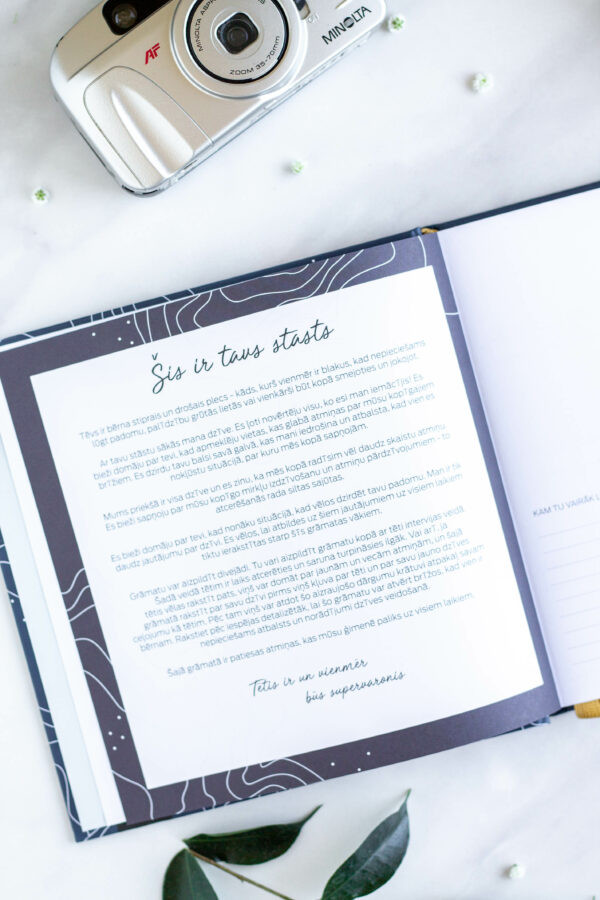 AF
MINOLTA
ZOOM 35-70mm
MINOLTA
Šis ir tavs stāsts
Tēvs ir bērna stiprais un drošais plecs - kāds, kurš vienmēr ir blakus, kad nepieciešams
lūgt padomu, palīdzību grūtās lietās vai vienkārši būt kopā smejoties un jokojot.
Ar tavu stāstu sākās mana dzīve. Es ļoti novērtēju visu, ko esi man iemācījis! Es
bieži domāju par tevi, kad apmeklēju vietas, kas glabā atmiņas par mūsu kopīgajiem
brīžiem. Es dzirdu tavu balsi savā galvā, kas mani iedrošina un atbalsta, kad vien es
nokļūstu situācijā, par kuru mēs kopā sapņojām.
Mums priekšā ir visa dzīve un es zinu, ka mēs kopā radīsim vēl daudz skaistu atmiņu.
Es bieži sapņoju par mūsu kopīgo mirkļu izdzīvošanu un atmiņu pārdzīvojumiem - to
atcerēšanās rada siltas sajūtas.
Es bieži domāju par tevi, kad nonāku situācijā, kad vēlos dzirdēt tavu padomu. Man ir tik
daudz jautājumu par dzīvi. Es vēlos, lai atbildes uz šiem jautājumiem uz visiem laikiem
tiktu ierakstītas starp šīs grāmatas vākiem.
Grāmatu var aizpildīt divējādi. Tu vari aizpildīt grāmatu kopā ar tēti intervijas veidā.
Šādā veidā tētim ir laiks atcerēties un saruna turpināsies ilgāk. Vai arī, ja
tētis vēlas rakstīt pats, viņš var domāt par jaunām un vecām atmiņām, un šajā
grāmatā rakstīt par savu dzīvi pirms viņš kļuva par tēti un par savu jauno dzīves
ceļojumu kā tētim. Pēc tam viņš var atdot šo aizraujošo dārgumu krātuvi atpakaļ savam
bērnam. Rakstiet pēc iespējas detalizētāk, lai šo grāmatu var atvērt brīžos, kad vien ir
nepieciešams atbalsts un norādījumi dzīves veidošanā.
Šajā grāmatā ir patiesas atmiņas, kas mūsu ģimenē paliks uz visiem laikiem.
Tētis ir un vienmēr
būs supervaronis
KAM TU VAIRĀK L